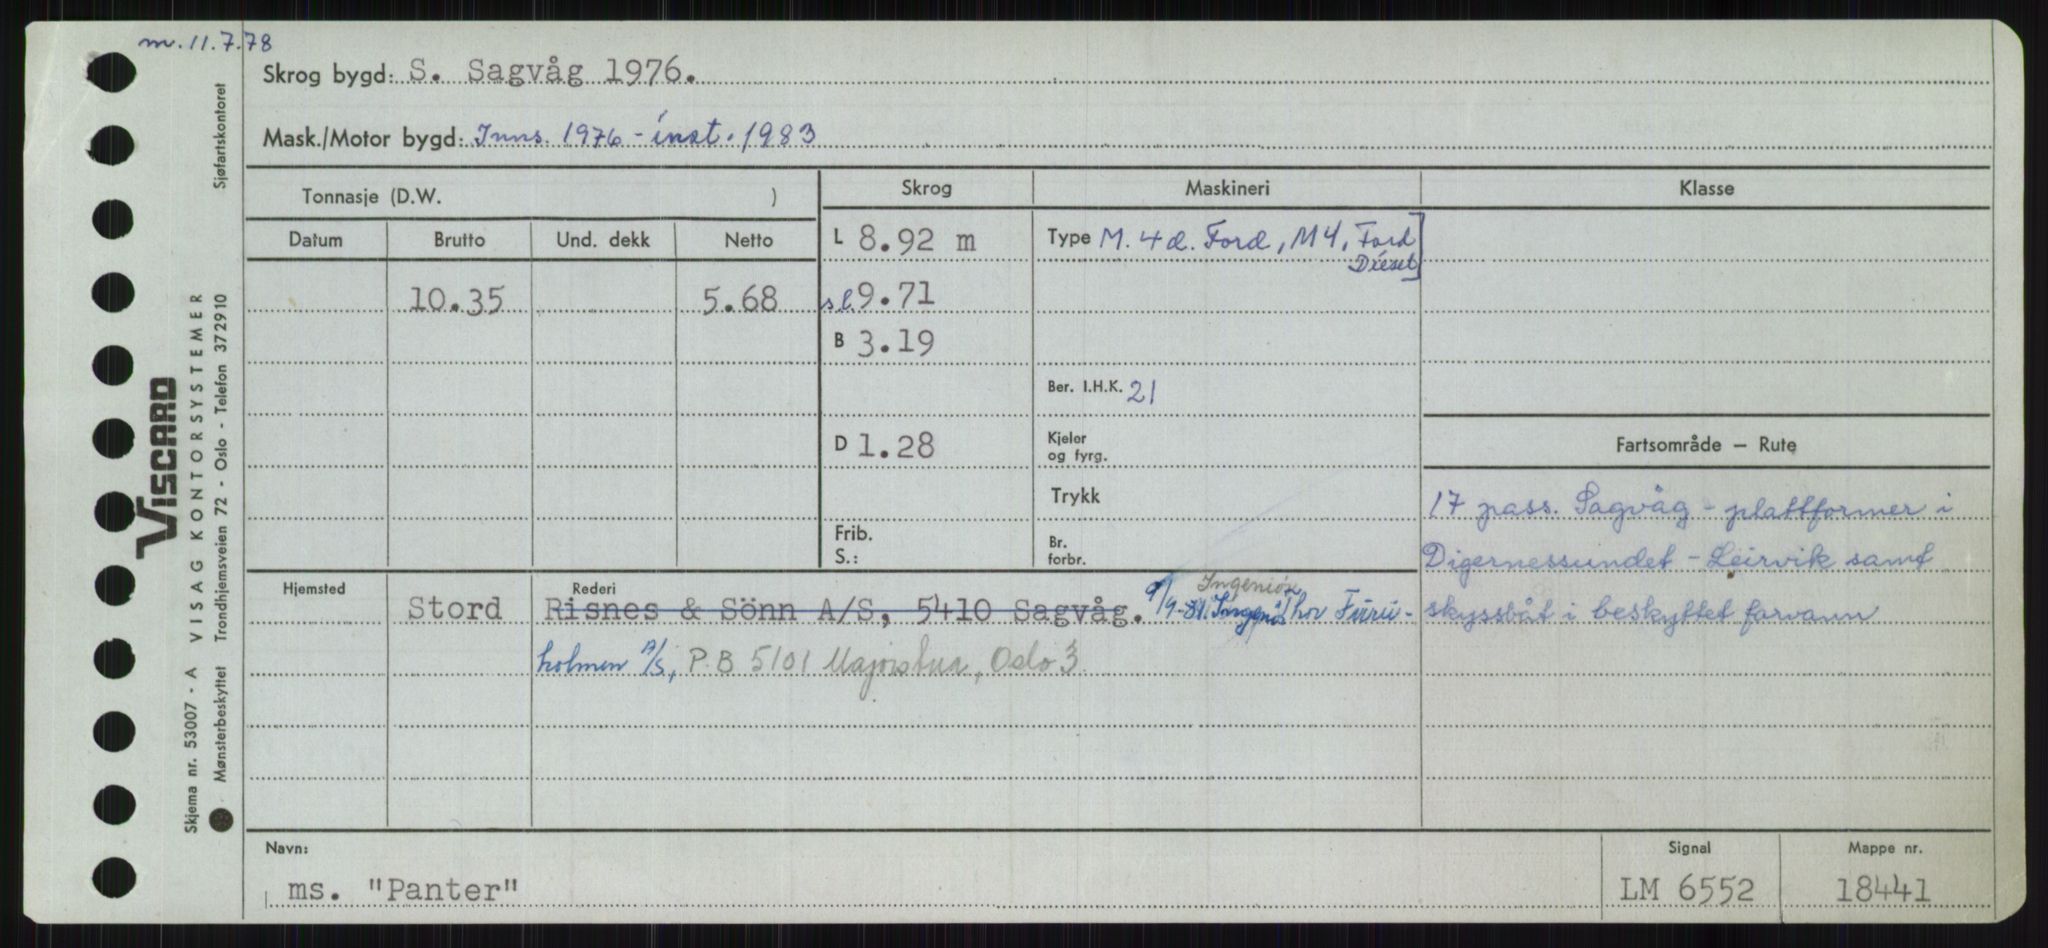 m. 11.7.78
Skrog bygd: S. Sagvåg 1976.
Mask./Motor bygd: Inns. 1976 - inst. 1983
Tonnasje (D.W. )
Skrog
Maskineri
Klasse
Datum
Brutto
Und. dekk
Netto
L 8.92 m
Type M. 4 d. Ford, M 4, Ford
Diesel
10.35
5.68
s.l. 9.71
B 3.19
Ber. I.H.K. 21
D 1.28
Kjeler
og fyrg.
Fartsområde – Rute
Trykk
17 pass. Sagvåg - plattformer i
Frib.
S.:
Br.
forbr.
Digernessundet - Leirvik samt
skyssbåt i beskyttet farvann
Hjemsted
Stord
Rederi
Risnes & Sönn A/S, 5410 Sagvåg.
Ingeniör
9/9-81. Ingeniör Thor Furu-
holmen A/S, P.B. 5101 Majorstua, Oslo 3.
Navn:
ms. "Panter"
Signal
LM 6552
Mappe nr.
18441
VISCARD
VISAG KONTORSYSTEMER
Trondhjemsveien 72 - Oslo - Telefon 372910
Sjøfartskontoret
Skjema nr. 53007 - A
Mønsterbeskyttet